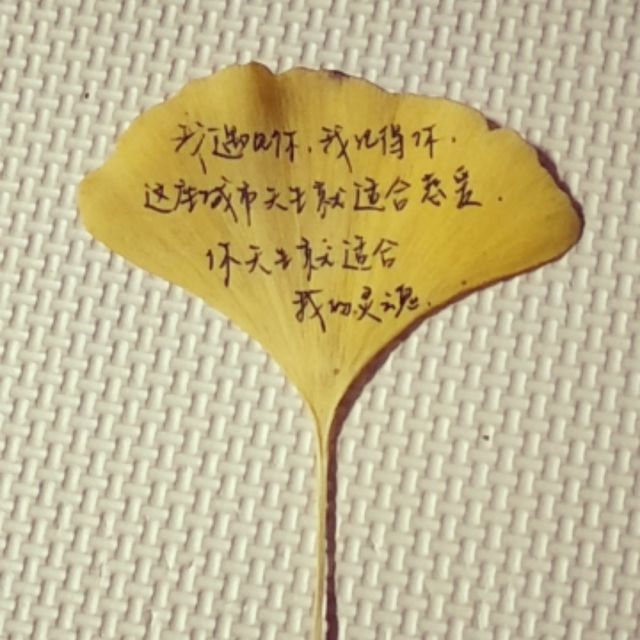 我遇见你，我记得你.
这座城市天生就适合恋爱.
你天生就适合
我的灵魂.